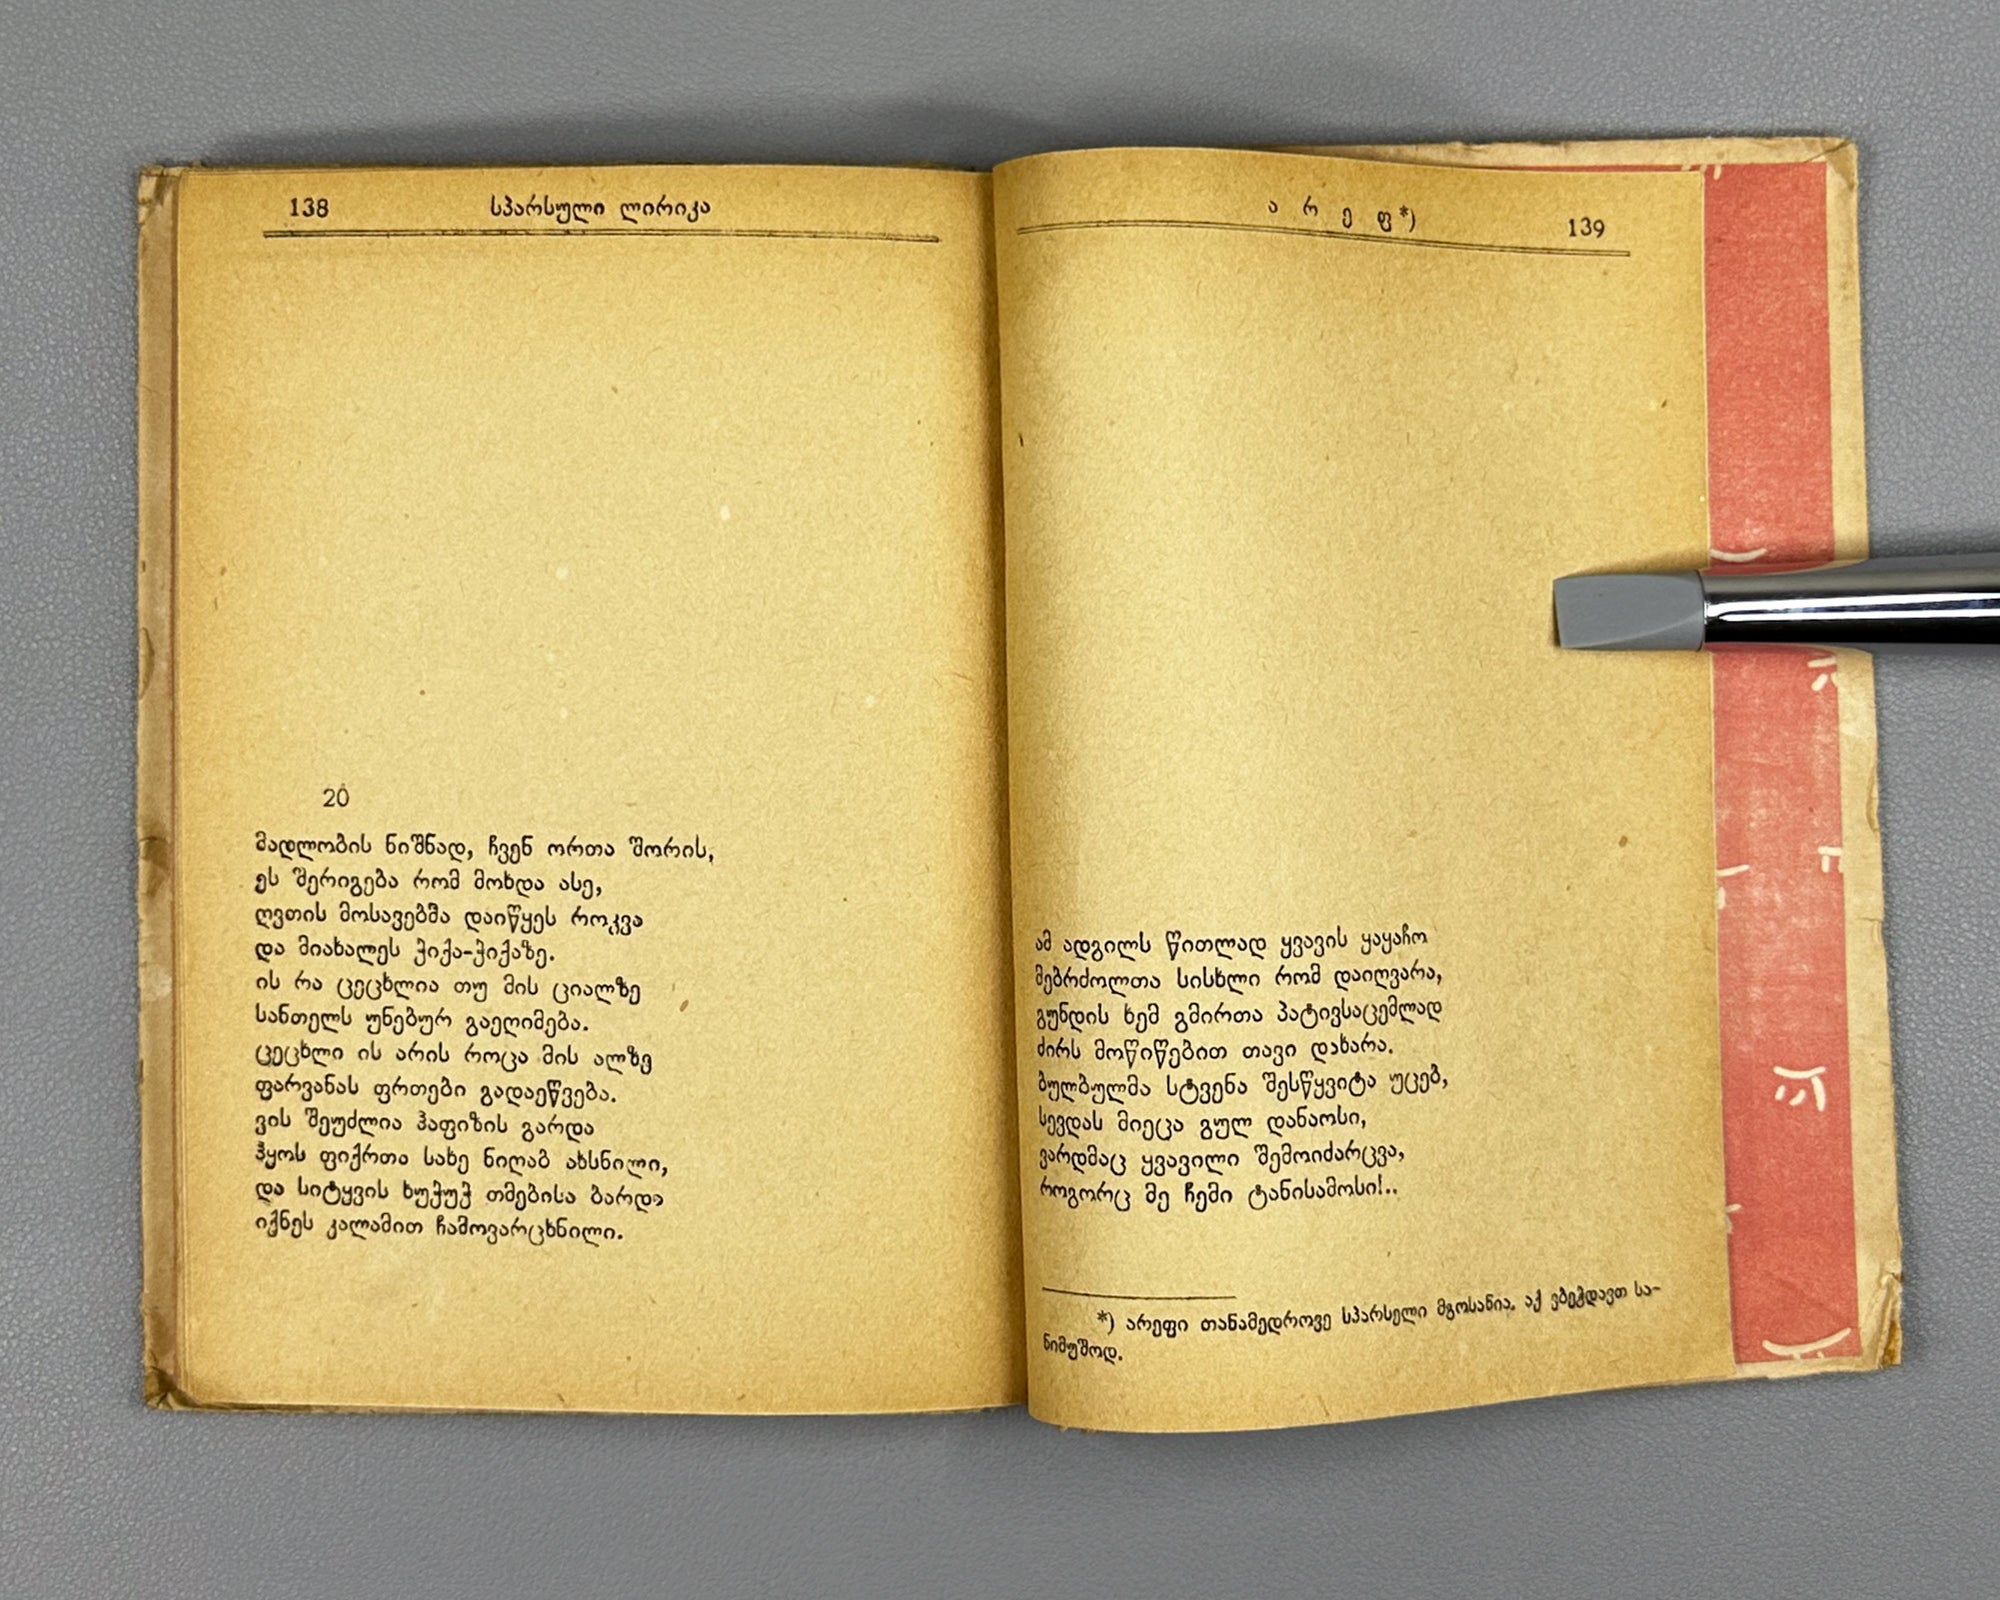 138 სპარსული ლირიკა
20
მადლობის ნიშნად, ჩვენ ორთა შორის,
ეს შერიგება რომ მოხდა ასე,
ღვთის მოსავებმა დაიწყეს როკვა
და მიახალეს ჭიქა-ჭიქაზე.
ის რა ცეცხლია თუ მის ციალზე
სანთელს უნებურ გაეღიმება.
ცეცხლი ის არის როცა მის ალზე
ფარვანას ფრთები გადაეწვება.
ვის შეუძლია ჰაფიზის გარდა
ჰყოს ფიქრთა სახე ნიღაბ ახსნილი,
და სიტყვის ხუჭუჭ თმებისა ბარდა
იქნეს კალამით ჩამოვარცხნილი.
ა რ ე ფ*) 139
ამ ადგილს წითლად ყვავის ყაყაჩო
მებრძოლთა სისხლი რომ დაიღვარა,
გუნდის ხემ გმირთა პატივსაცემლად
ძირს მოწიწებით თავი დახარა.
ბულბულმა სტვენა შესწყვიტა უცებ,
სევდას მიეცა გულ დანაოსი,
ვარდმაც ყვავილი შემოიძარცვა,
როგორც მე ჩემი ტანისამოსი!..
*) არეფი თანამედროვე სპარსელი მგოსანია. აქ ვბეჭდავთ სა-
ნიმუშოდ.